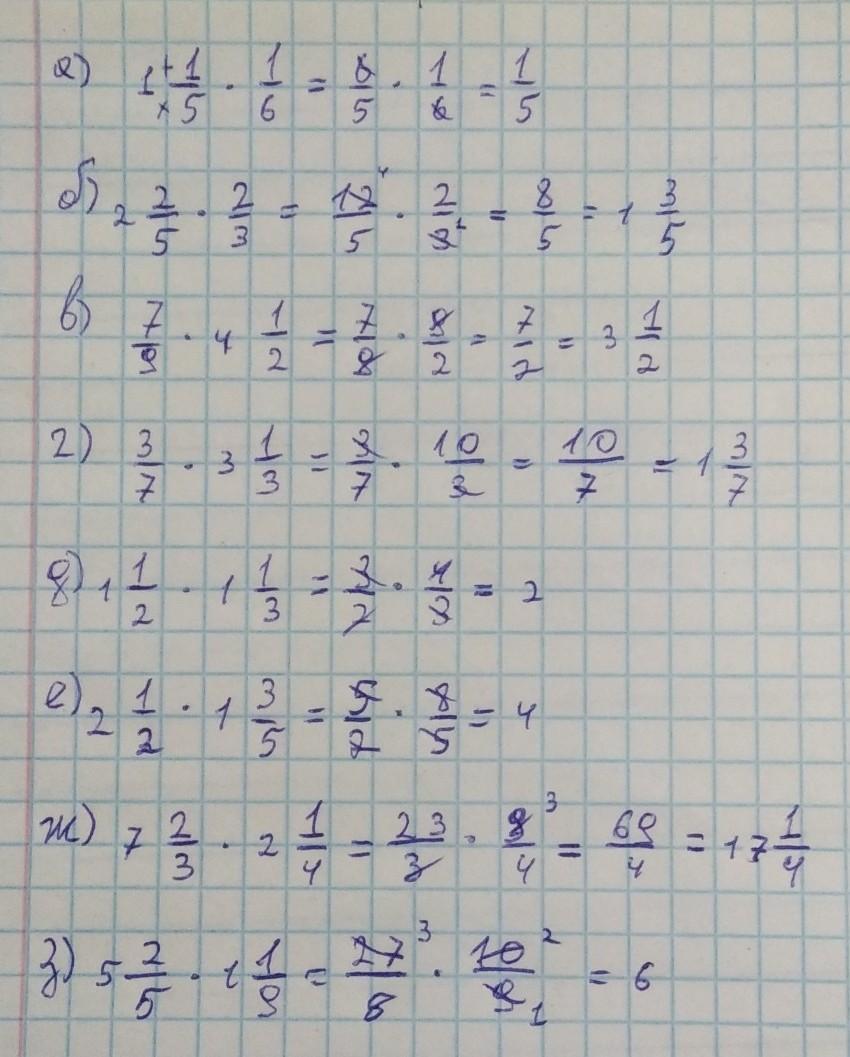 а) 1 1/5 · 1/6 = 6/5 · 1/6 = 1/5
б) 2 2/5 · 2/3 = 12/5 · 2/3 = 8/5 = 1 3/5
в) 7/9 · 4 1/2 = 7/9 · 9/2 = 7/2 = 3 1/2
г) 3/7 · 3 1/3 = 3/7 · 10/3 = 10/7 = 1 3/7
д) 1 1/2 · 1 1/3 = 3/2 · 4/3 = 2
е) 2 1/2 · 1 3/5 = 5/2 · 8/5 = 4
ж) 7 2/3 · 2 1/4 = 23/3 · 9/4 = 69/4 = 17 1/4
з) 5 2/5 · 1 1/9 = 27/5 · 10/9 = 6